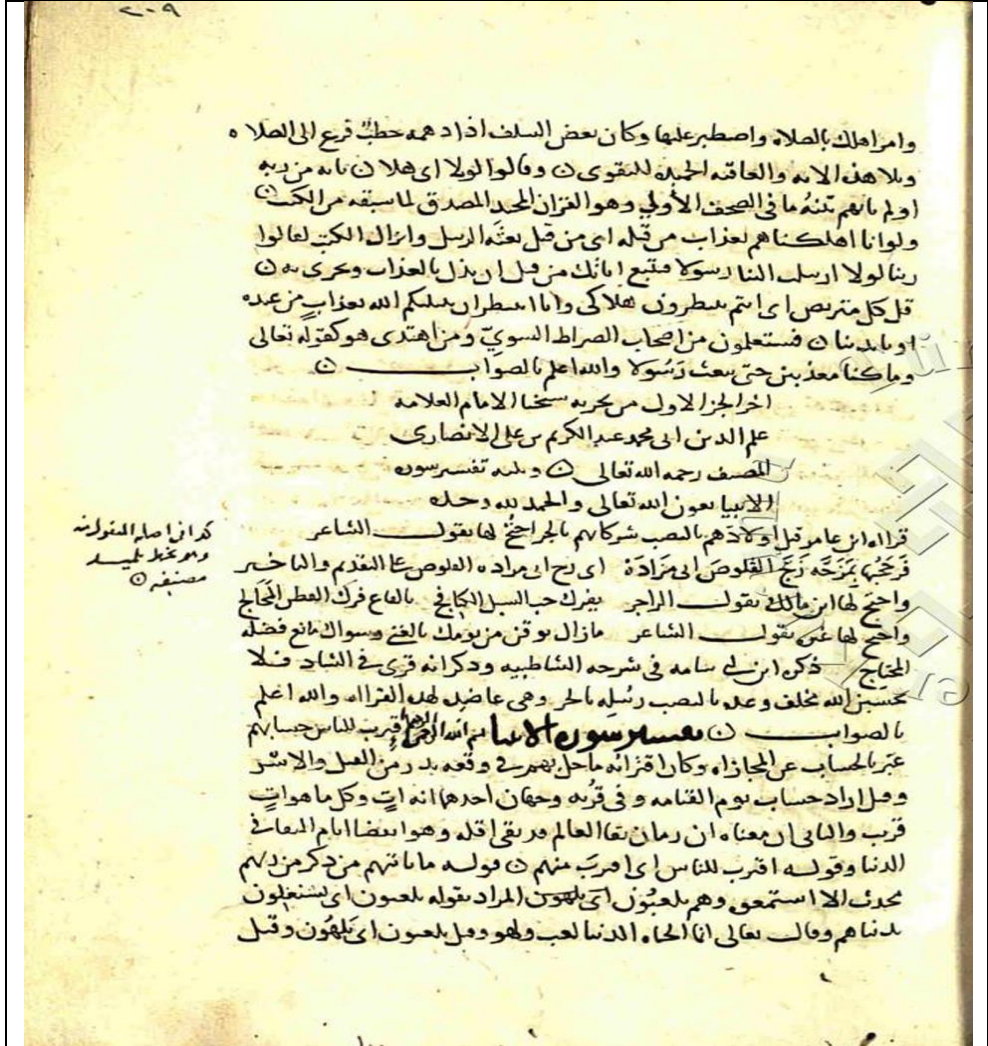 ٢٠٩
وامر اهلك بالصلاه واصطبر عليها وكان بعض السلف اذا دهمه خطبٌ فزع الى الصلاه
وتلا هذه الايه والعاقبه الحميده للتقوى ۞ وقالوا لولا اى هلا ۞ بايه من ربه
او لم ياتهم بينهُ ما فى الصحف الأولى وهو القران المجيد المصدق لما سبقه من الكتب ۞
ولو انا اهلكناهم بعذاب من قبله اى من قبل بعثه الرسل وانزال الكتب لقالوا
ربنا لولا ارسلت الينا رسولا فنتبع اياتك من قبل ان نذل بالعذاب ونخزى به ۞
قل كل متربص اى انتم تنتظرون هلاكى وانا انتظر ان يبتليكم الله بعذاب من عنده
او بايدينا ۞ فستعلمون من اصحاب الصراط السوىّ ومن اهتدى هو كقوله تعالى
وما كنا معذبين حتى نبعث رَسُولا والله اعلم بالصواب ۞
اخر الجز الاول من تجربه شيخنا الامام العلامه
علم الدين ابى محمد عبد الكريم بن على الانصارى
المصنف رحمه الله تعالى ۞ ويليه تفسير سوره
الانبيا بعون الله تعالى والحمد لله وحده
قراه ابن عامر قتل اولادَهم بالنصب شركائهم بالجر احتج لها بقول الشاعر
فَزَجَجْتُها بمَزَجَّه زَجَّ القلوصَ ابى مَزادَة اى زج ابى مزاده القلوص على التقديم والتاخير
واحتج لها ابن مالك بقول الراجز يفرك حب السنبل الكنافج بالقاع فرك القطن المَحَالج
واحتج لها غيره بقول الشاعر ما زال يوقن من يومك بالغنى وسواك مانع فضله
المحتاج ذكره ابن ابى شامه فى شرحه الشاطبيه وذكر انه قرى فى الشاذ فلا
تحسبن الله مخلف وعده بالنصب رسُلِه بالجر وهى عاضده لهذه القراه والله اعلم
بالصواب ۞ تفسير سوره الانبيا بسم الله الرحمن الرحيم اقترب للناس حسابهم
عبّر بالحساب عن المجازاه وكان اقترابه ما حل بهم فى وقعه بدر من القتل والاسر
وقيل اراد حساب يوم القيامه وفى قربه وجهان احدهما انه اتٍ وكل ما هو اتٍ
قريب والثانى ان معناه ان زمان بقا العالم قد بقى اقله وهو ايضا ايام البقا فى
الدنيا وقوله اقترب للناس اى اقتربَ منهم ۞ قوله ما ياتيهم من ذكر من ربهم
محدث الا استمعوه وهم يلعبُون اى يلهون المراد بقوله يلعبون اى يشتغلون
بدنياهم وقال تعالى انما الحياه الدنيا لعب ولهو وقيل يلعبون اى يَلهُون وقيل
كذا فى اصله المنقول منه
وهو بخط تلميذ
مصنفه ۞